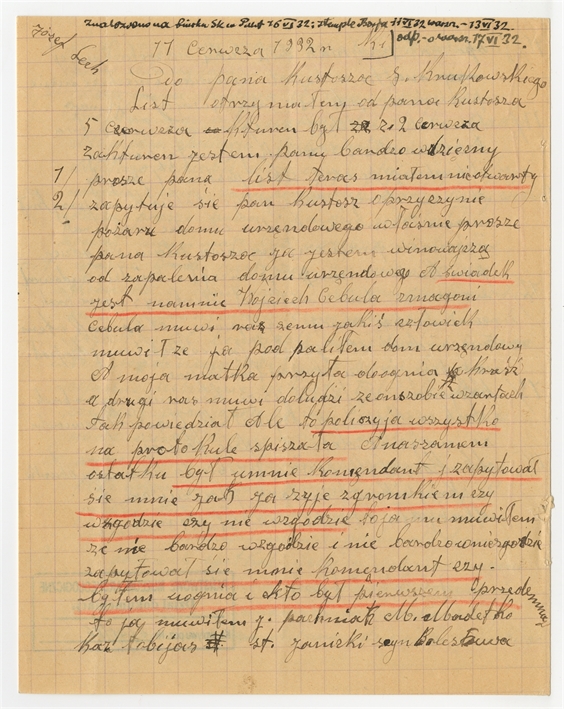 Znaleziono na biurku Sk. w P.u.t 16 VI 32; stemple 11 VI 32 warsz. - 13 VI 32.
odp. - o warsz. 17 VI 32.
Józef Lech
11 Czerwcza 1932 r
Do pana Kustoszoc
List otrzymałem od pana Kustosza
5 czerwcza kturen był z 2 cerwcza
zakturen jestem panu bardzo wdzięczny
1/ prosze pana list teras miałem nieotwarty
2/ zapytuje sie pan Kustosz oprzyczynie
pożaru domu urzendowego własnie prosze
pana Kustoszoc ja jestem winowajczą
od zapalenia domu urzendowego A swiadek
jest namnie Wojciech Cebula zmogoni
Cebula muwi raz jakiś człowiek
muwił ze ja pod paliłem dom urzendowy
A moja matka przyta doognia kraść
a drugi ras muwi doludzi zeonszobie wzartach
tak powiedział Ale to policyja wszystko
na protokule spiszała Anaszamem
ostatku był umnie komendant i zapytował
sie mnie jak ja zyje zgromkiem czy
wzgodzie czy nie wzgodzie toja mu muwiłem
ze nie bardzo wzgodzie i nie bardzowniezgodzie
zapytował sie mnie komendant czy.
byłem uognia i kto był pierwszem przydemną
to ja muwiłem j. pachniak M. Madetko
Kaz tobijas st. janicki syn Bolesława